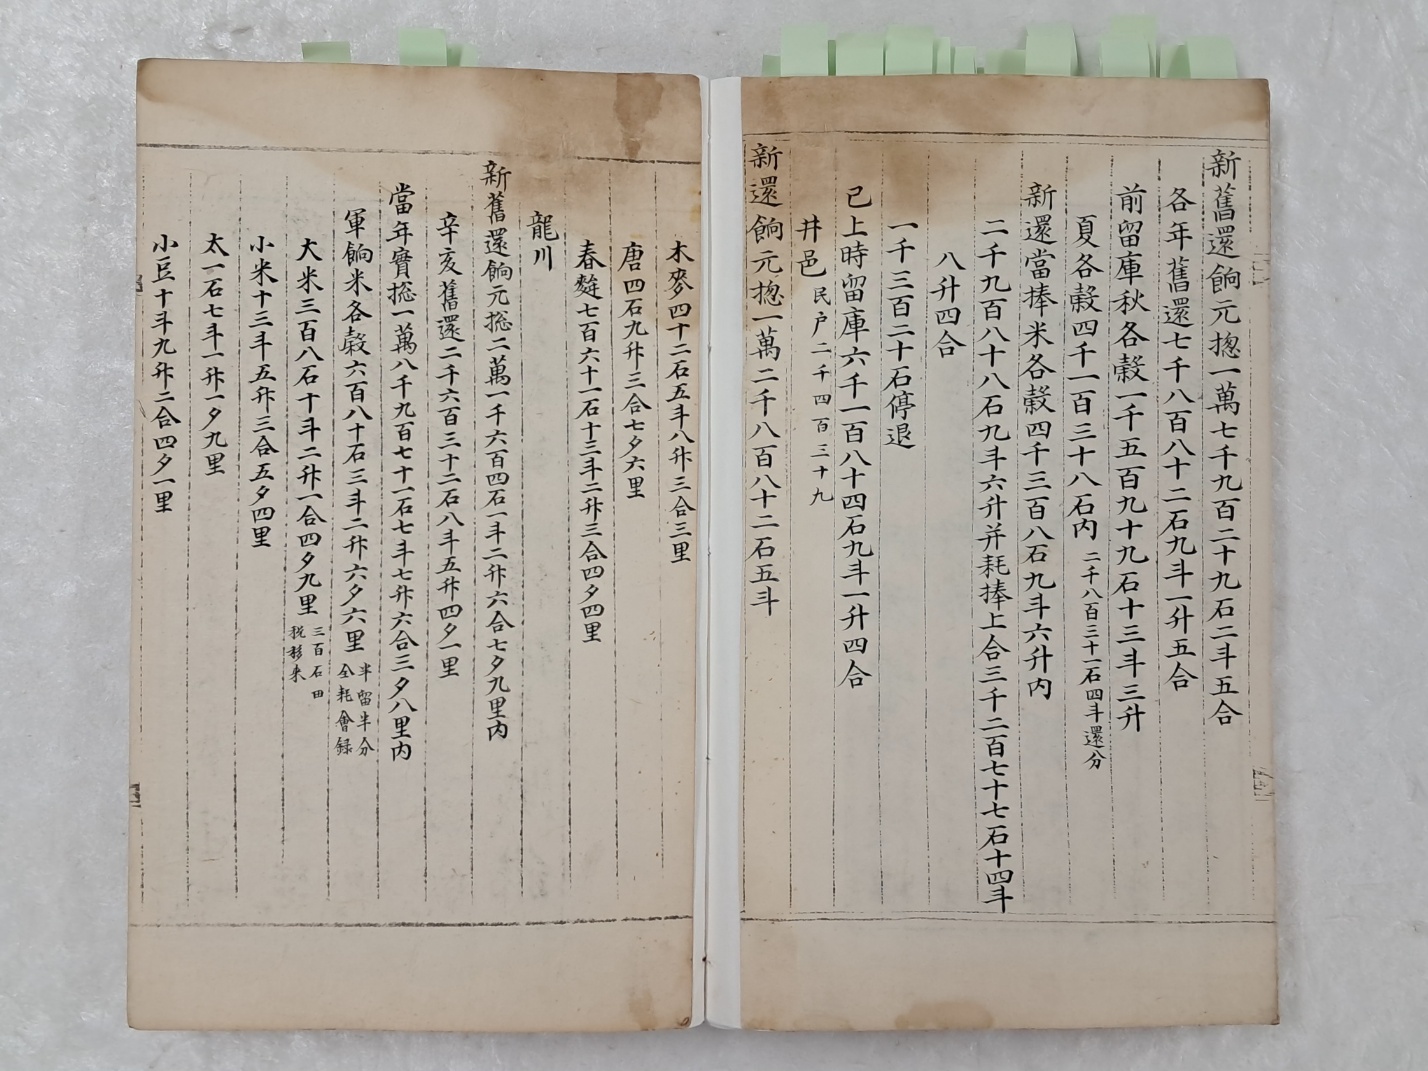 新舊還餉元揔一萬七千九百二十九石二斗五合
各年舊還七千八百八十二石九斗一升五合
前留庫秋各穀一千五百九十九石十三斗三升
夏各穀四千一百三十八石內二千八百三十一石四斗還分
新還當捧米各穀四千三百八石九斗六升內
二千九百八十八石九斗六升并耗捧上合三千二百七十七石十四斗
八升四合
一千三百二十石停退
已上時留庫六千一百八十四石九斗一升四合
井邑民戶二千四百三十九
新還餉元揔一萬二千八百八十二石五斗
木麥四十二石五斗八升三合三里
唐四石九升三合七夕六里
春麰七百六十一石十三斗二升三合四夕四里
龍川
新舊還餉元揔二萬一千六百四石一斗二升六合七夕九里內
辛亥舊還二千六百三十二石八斗五升四夕一里
當年實捴一萬八千九百七十一石七斗七升六合三夕八里內
軍餉米各穀六百八十石三斗二升六夕六里半留半分
全耗會録
大米三百八石十斗二升一合四夕九里三百石田
稅移来
小米十三斗五升三合五夕四里
太一石七斗一升一夕九里
小豆十斗九升二合四夕一里